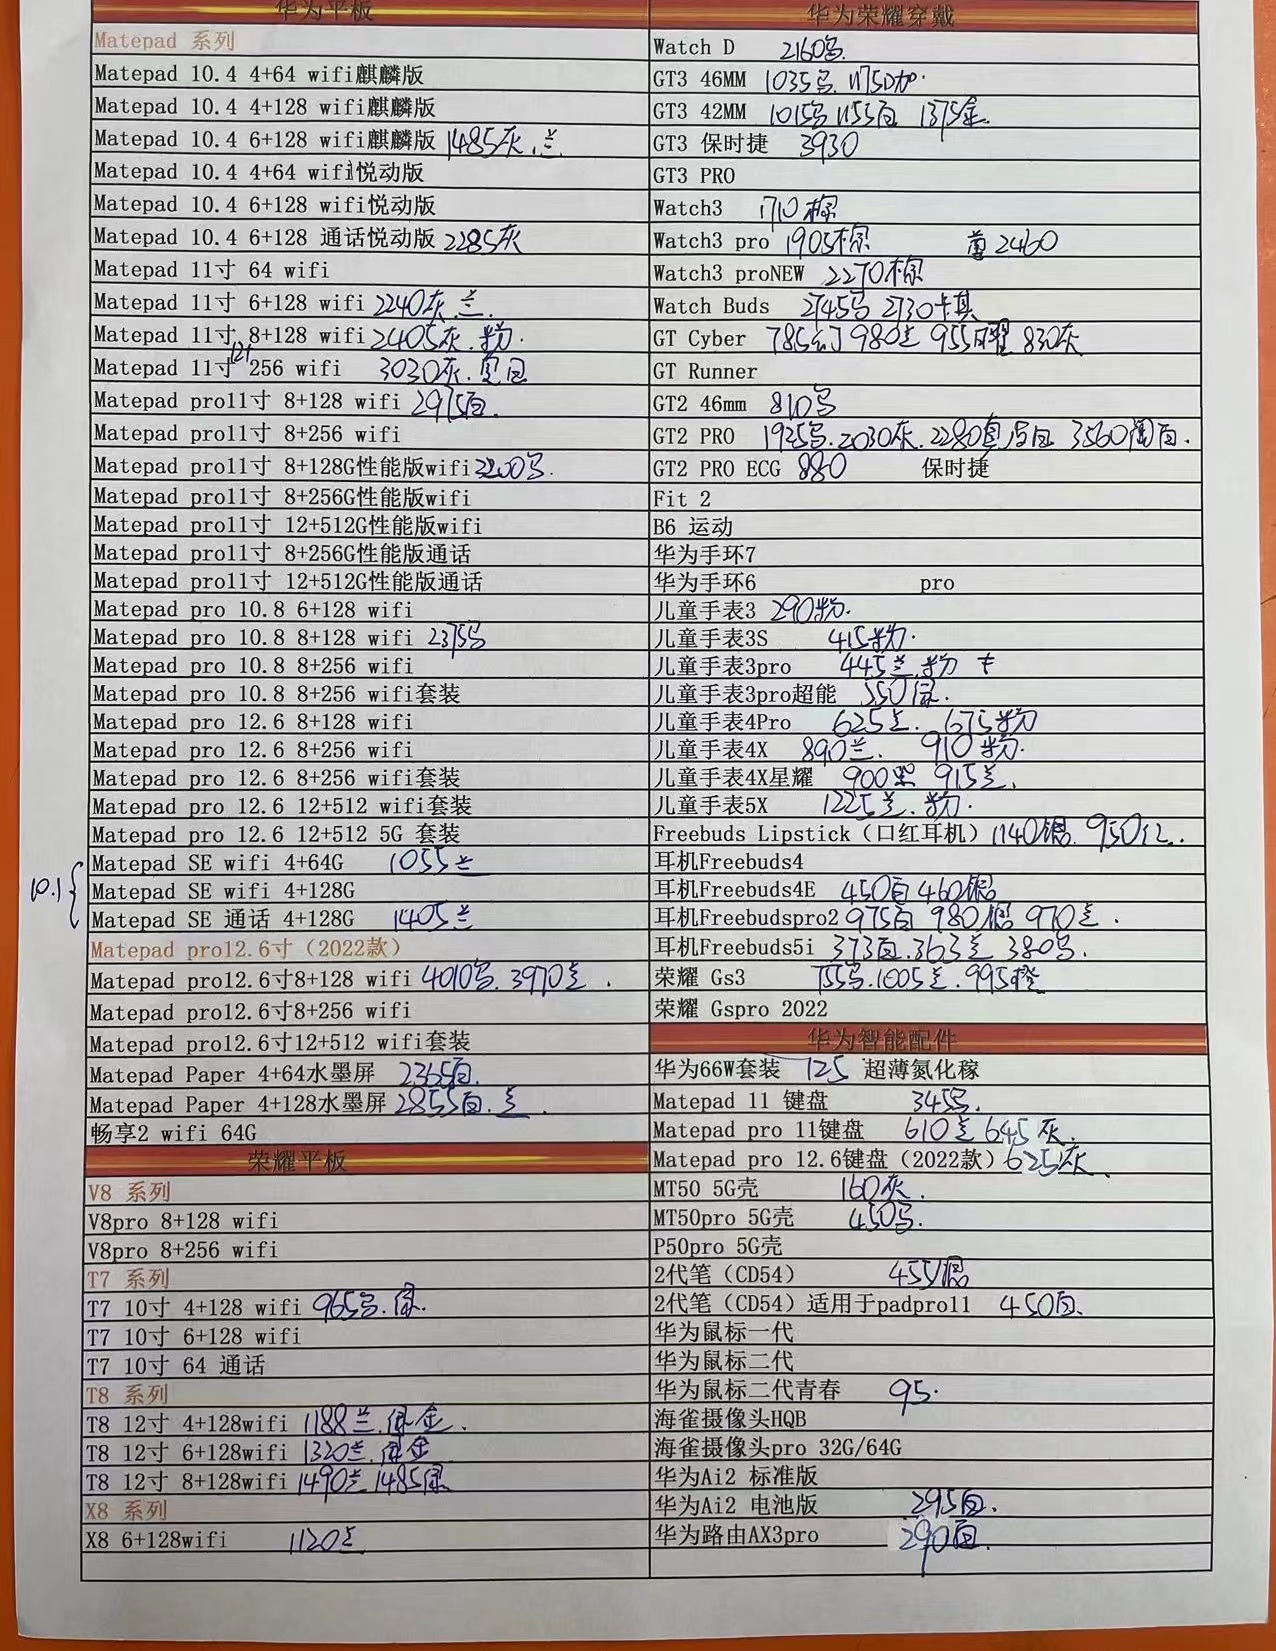 华为平板
Matepad 系列
Matepad 10.4 4+64 wifi麒麟版
Matepad 10.4 4+128 wifi麒麟版
Matepad 10.4 6+128 wifi麒麟版 1485灰.兰
Matepad 10.4 4+64 wifi悦动版
Matepad 10.4 6+128 wifi悦动版
Matepad 10.4 6+128 通话悦动版 2285灰
Matepad 11寸 64 wifi
Matepad 11寸 6+128 wifi 2240灰.兰.
Matepad 11寸 8+128 wifi 2405灰.粉.
Matepad 11寸 256 wifi 3030灰.
Matepad pro11寸 8+128 wifi 2975白.
Matepad pro11寸 8+256 wifi
Matepad pro11寸 8+128G性能版wifi 3200
Matepad pro11寸 8+256G性能版wifi
Matepad pro11寸 12+512G性能版wifi
Matepad pro11寸 8+256G性能版通话
Matepad pro11寸 12+512G性能版通话
Matepad pro 10.8 6+128 wifi
Matepad pro 10.8 8+128 wifi 2375
Matepad pro 10.8 8+256 wifi
Matepad pro 10.8 8+256 wifi套装
Matepad pro 12.6 8+128 wifi
Matepad pro 12.6 8+256 wifi
Matepad pro 12.6 8+256 wifi套装
Matepad pro 12.6 12+512 wifi套装
Matepad pro 12.6 12+512 5G 套装
10.1
Matepad SE wifi 4+64G 1055兰
Matepad SE wifi 4+128G
Matepad SE 通话 4+128G 1405兰
Matepad pro12.6寸（2022款）
Matepad pro12.6寸8+128 wifi 4010 3970兰.
Matepad pro12.6寸8+256 wifi
Matepad pro12.6寸12+512 wifi套装
Matepad Paper 4+64水墨屏 2365白.
Matepad Paper 4+128水墨屏 2855白.兰.
畅享2 wifi 64G
荣耀平板
V8 系列
V8pro 8+128 wifi
V8pro 8+256 wifi
T7 系列
T7 10寸 4+128 wifi 965 绿.
T7 10寸 6+128 wifi
T7 10寸 64 通话
T8 系列
T8 12寸 4+128wifi 1188兰.绿 金.
T8 12寸 6+128wifi 1320兰.绿 金
T8 12寸 8+128wifi 1490兰 1485绿
X8 系列
X8 6+128wifi 1120兰
华为荣耀穿戴
Watch D 2160
GT3 46MM 1035 1175
GT3 42MM 1015 1155白 1375金
GT3 保时捷 3930
GT3 PRO
Watch3 1710棕
Watch3 pro 1905棕 2460
Watch3 proNEW 2270棕
Watch Buds 2745 2730卡其
GT Cyber 785幻 980兰 955 曜 830灰
GT Runner
GT2 46mm 810
GT2 PRO 1925 2030灰.2280 3560 白.
GT2 PRO ECG 880 保时捷
Fit 2
B6 运动
华为手环7
华为手环6 pro
儿童手表3 290粉.
儿童手表3S 415粉.
儿童手表3pro 445兰.粉
儿童手表3pro超能 350绿.
儿童手表4Pro 625兰. 675粉
儿童手表4X 890兰. 910粉.
儿童手表4X星耀 900黑 915兰.
儿童手表5X 1225兰.粉.
Freebuds Lipstick（口红耳机）1140银 950红.
耳机Freebuds4
耳机Freebuds4E 450白 460银
耳机Freebudspro2 975白 980银 970兰.
耳机Freebuds5i 373白.363兰 380
荣耀 Gs3 755 1005兰.995橙
荣耀 Gspro 2022
华为智能配件
华为66W套装 125 超薄氮化稼
Matepad 11 键盘 345
Matepad pro 11键盘 610兰 645灰.
Matepad pro 12.6键盘（2022款）625灰.
MT50 5G壳 160灰.
MT50pro 5G壳 450
P50pro 5G壳
2代笔（CD54） 455银
2代笔（CD54）适用于padpro11 450白.
华为鼠标一代
华为鼠标二代
华为鼠标二代青春 95.
海雀摄像头HQB
海雀摄像头pro 32G/64G
华为Ai2 标准版
华为Ai2 电池版 295白.
华为路由AX3pro 290白.